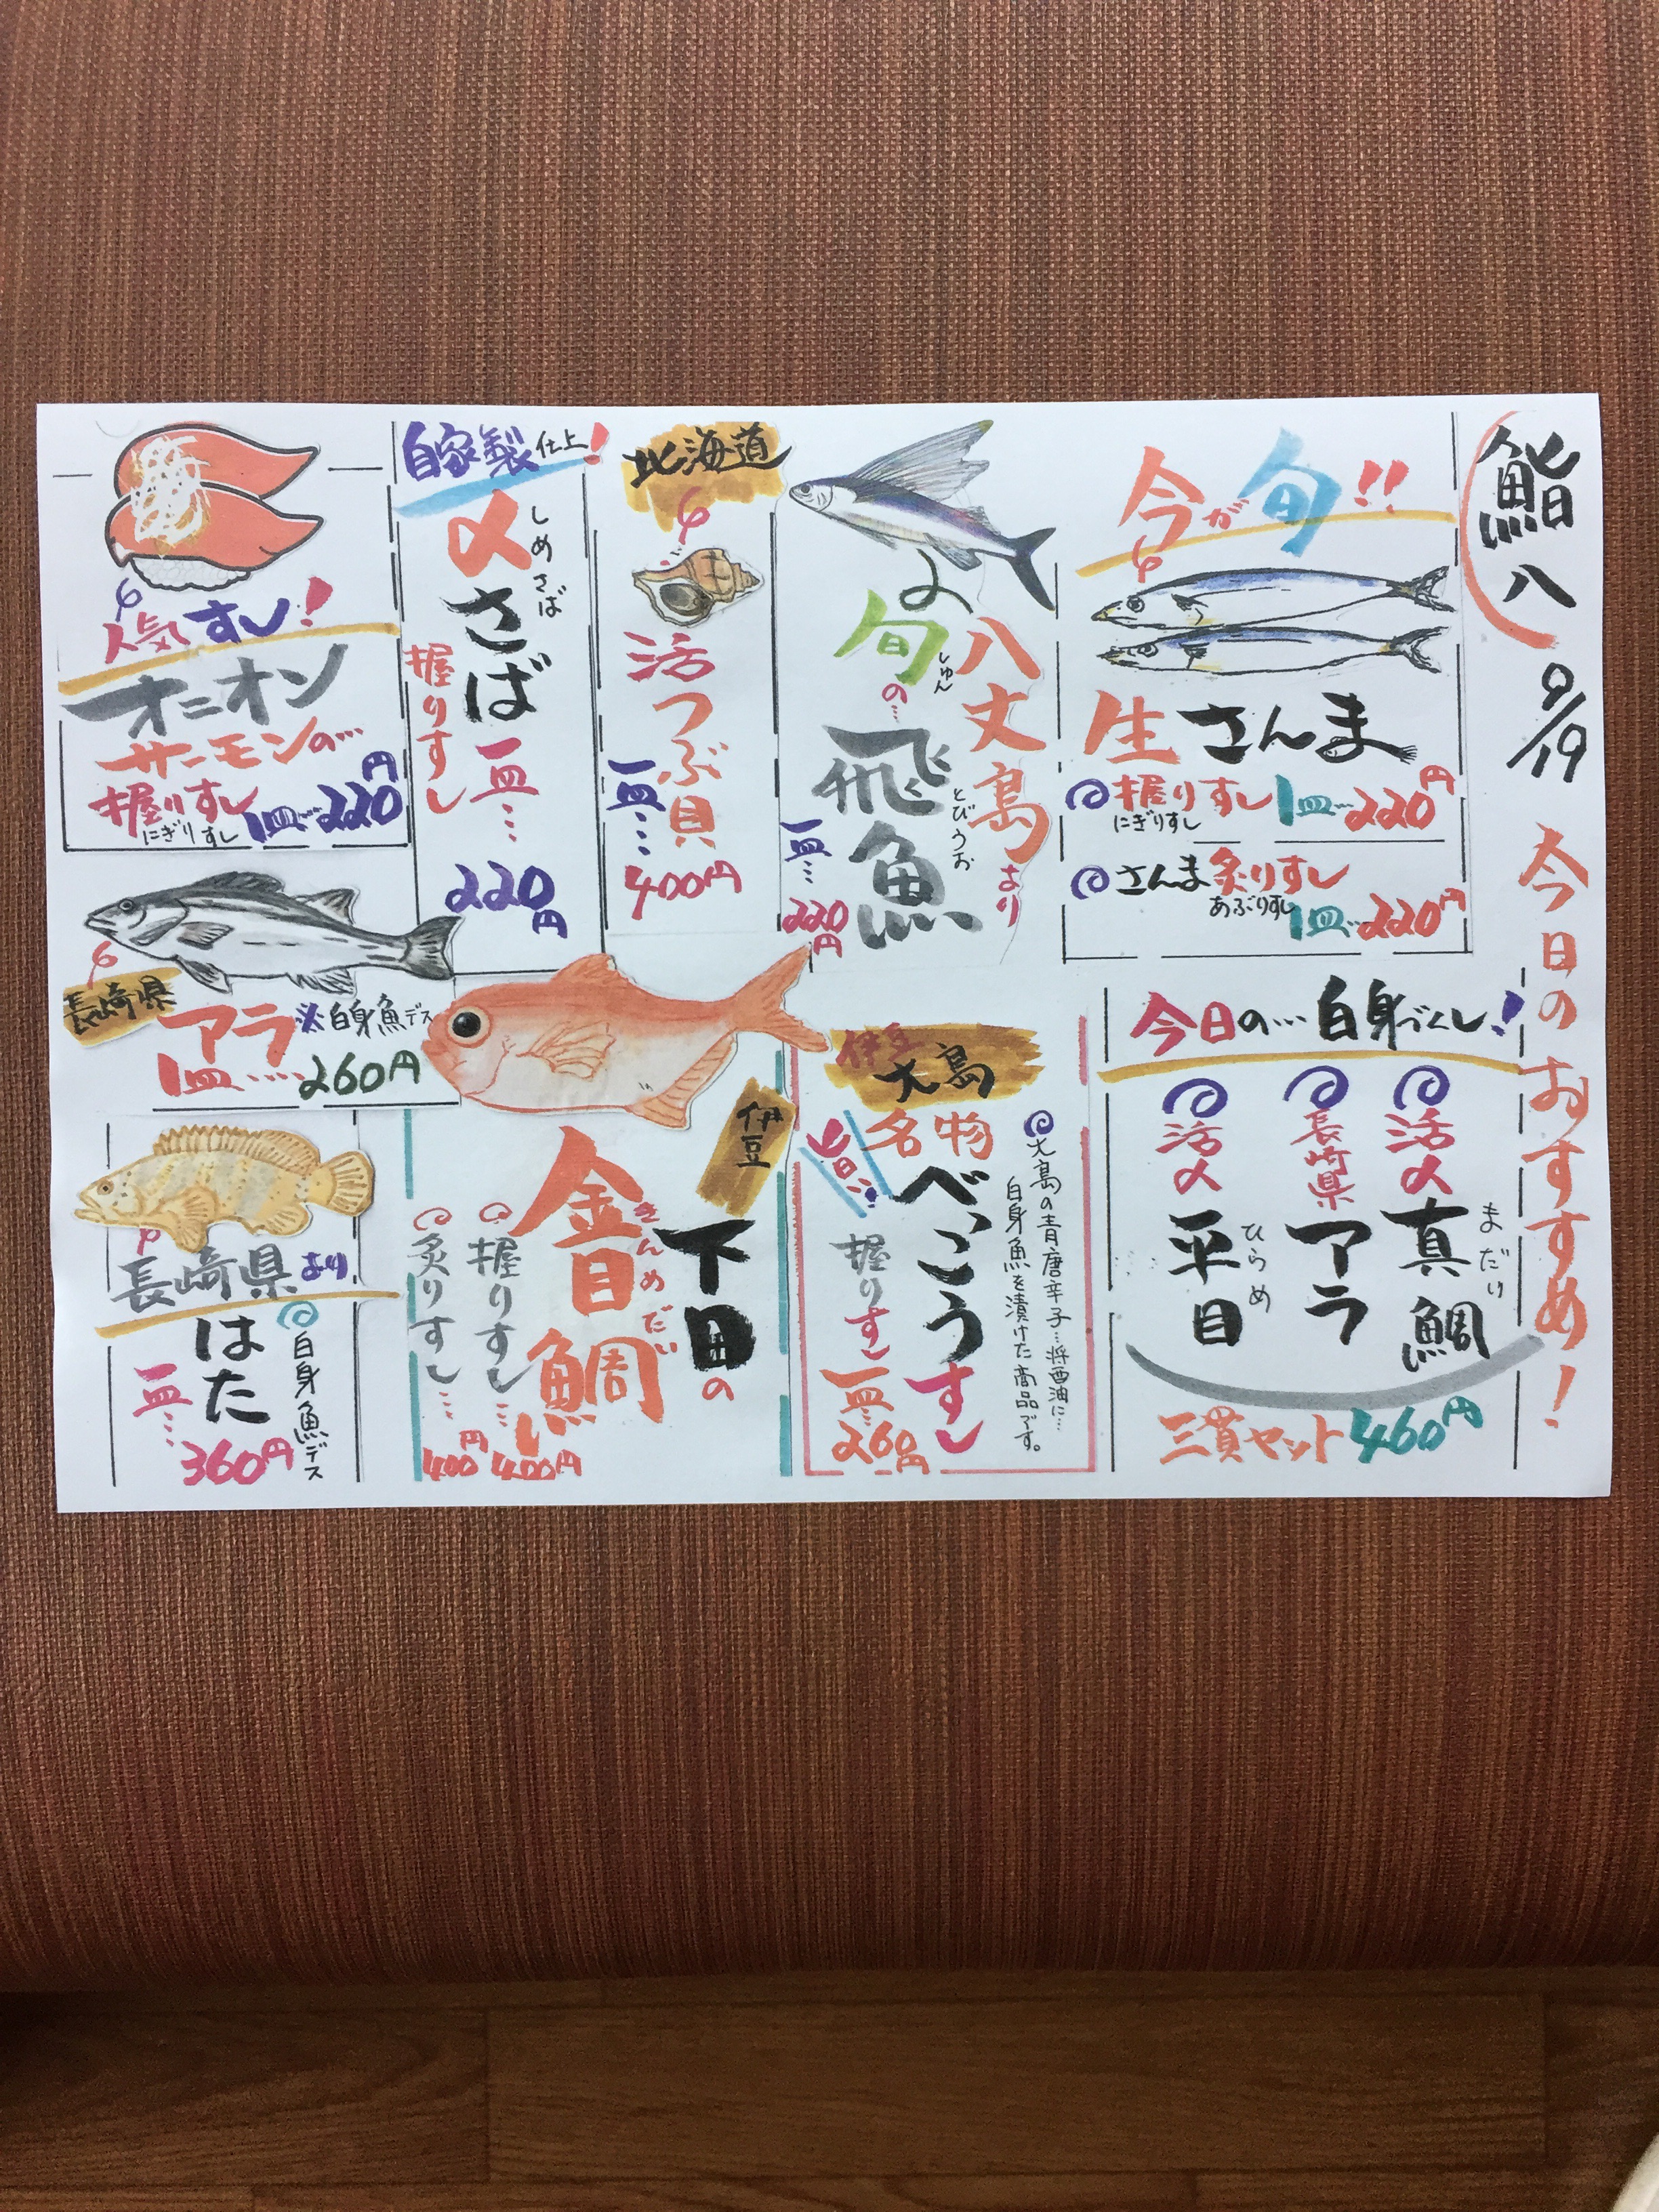 鮨八
9/19
今日のおすすめ!
今が旬!!
生さんま
握りすし 1皿…220円
にぎりすし
さんま炙りすし
あぶりすし
1皿…220円
八丈島より
旬の…
しゅん
飛魚
とびうお
一皿…
220円
北海道
活つぶ貝
一皿…
400円
自家製仕上!
〆さば
しめさば
握りすし
一皿…
220円
人気すし!
オニオン
サーモンの…
握りすし
にぎりすし
1皿…220円
今日の…白身づくし!
活〆
真鯛
まだい
長崎県
アラ
活〆
平目
ひらめ
三貫セット460円
伊豆
大島
名物
旨い
べっこうすし
大島の青唐辛子…将酉油に…
白身魚を漬けた商品です。
握りすし
一皿…
260円
伊豆
下田の
金目鯛
きんめだい
握りすし…
400円
炙りすし…
400円
長崎県
アラ※白身魚デス
1皿……260円
長崎県より
はた
白身魚デス
一皿…
360円